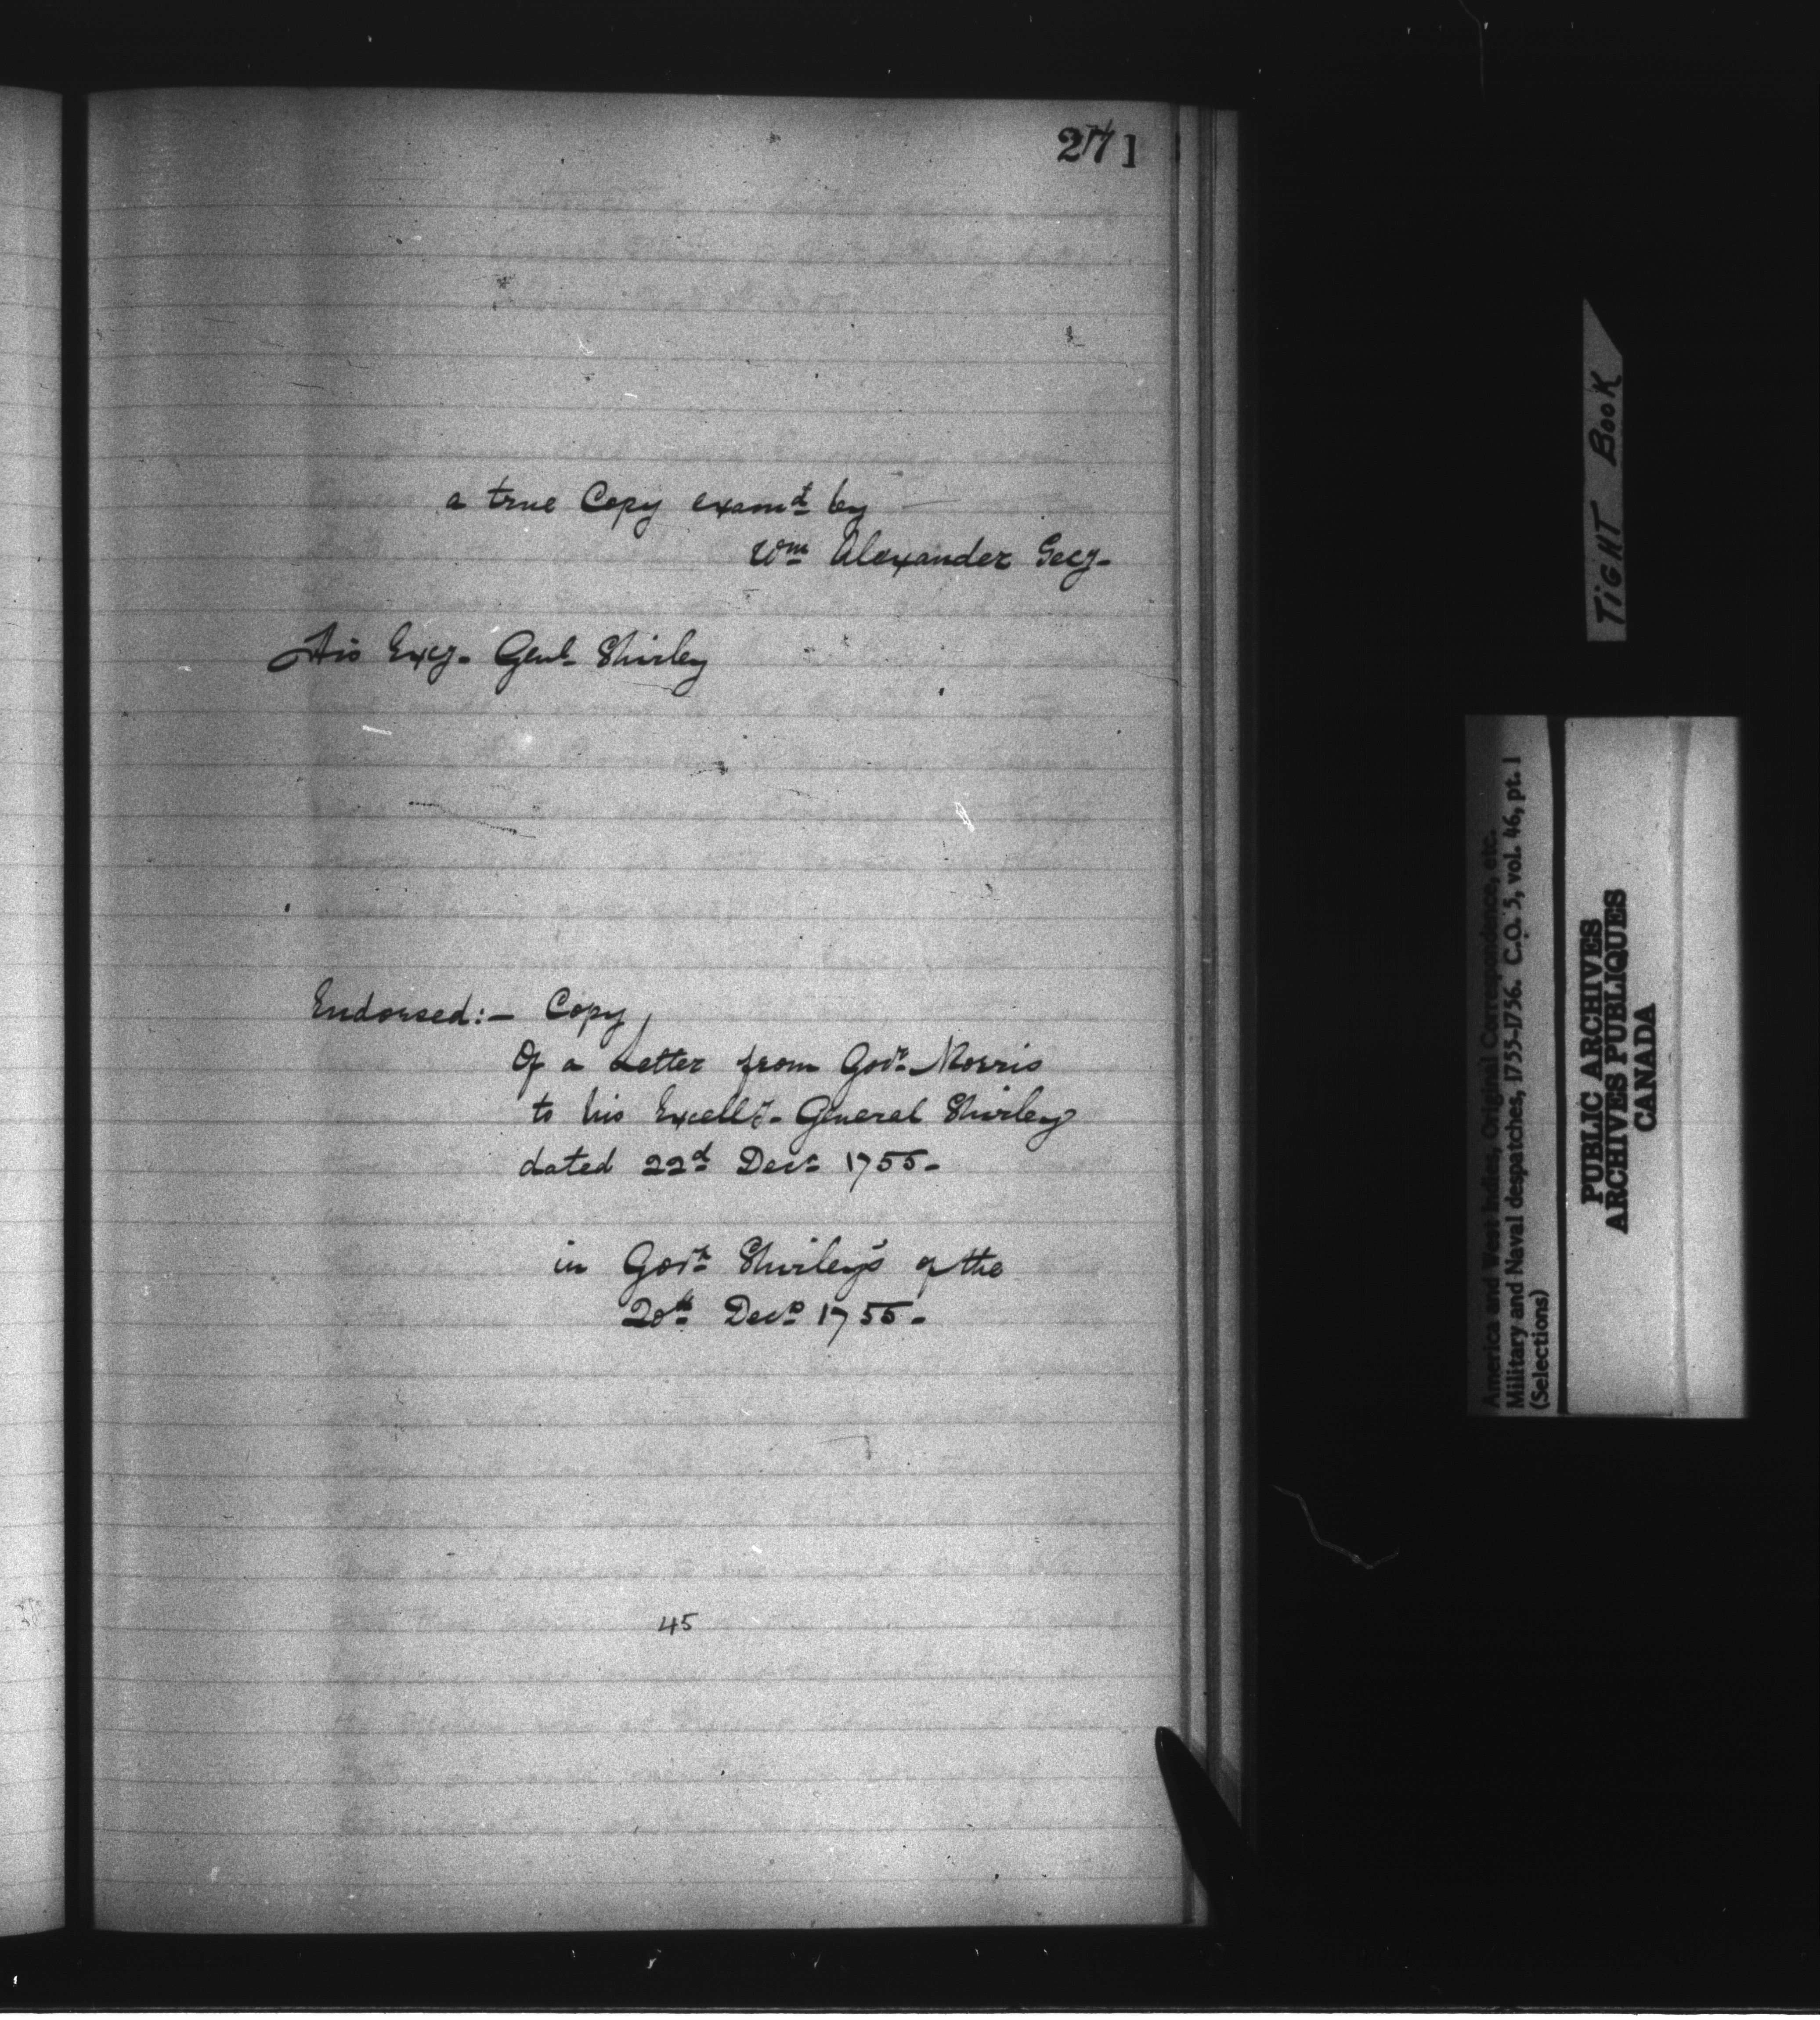 271
a true Copy examd by
Wm Alexander Secy-
His Excy- Genl- Shirley
Endorsed:- Copy
Of a Letter from Govr Morris
to his Excelly- General Shirley
dated 22d Decr 1755-
in Govr Shirley's of the
20th Decr 1755-
45
TIGHT BOOK
America and West Indies, Original Correspondence, etc.
Military and Naval despatches, 1755-1756. C.O. 5, vol. 46, pt. 1
(Selections)
PUBLIC ARCHIVES
ARCHIVES PUBLIQUES
CANADA